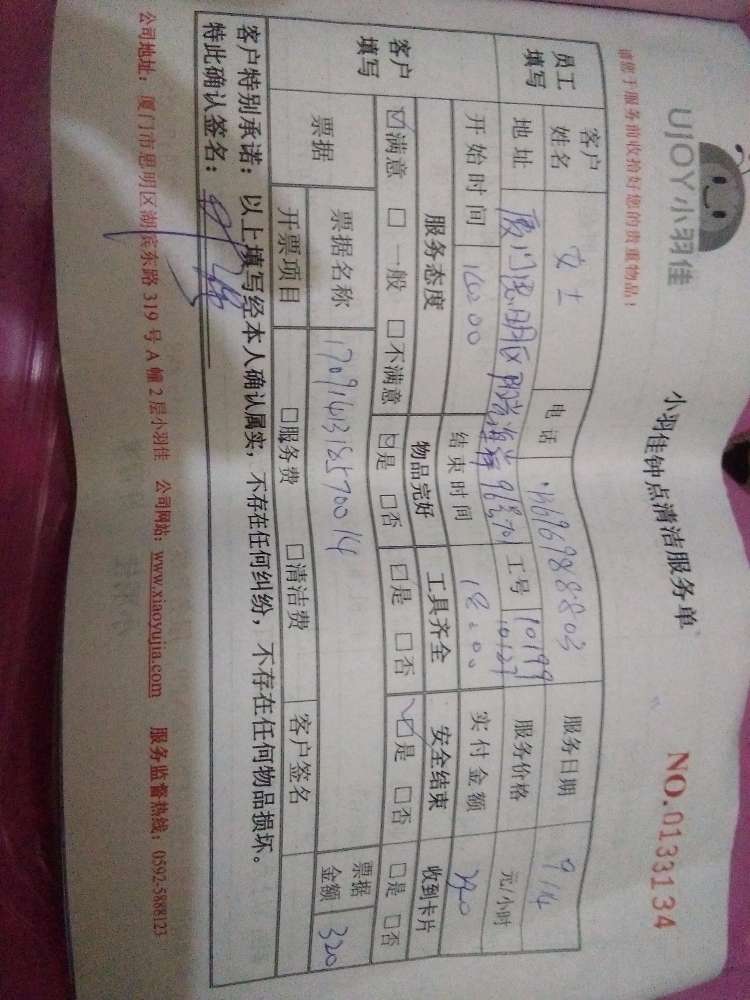 UJOY小羽佳
小羽佳钟点清洁服务单
NO.0133134
请您于服务前收拾好您的贵重物品！
员工填写 客户姓名 女士 电话 服务日期 9/14
地址 厦门思明区 海岸 工号 10199 10127 服务价格 元/小时
开始时间 16:00 结束时间 18:00 实付金额
客户填写 服务态度 物品完好 工具齐全 安全结束 收到卡片
☑满意 □一般 □不满意 ☑是 □否 □是 □否 ☑是 □否 □是 □否
票据 票据名称 1709143185570014 票据金额 320
开票项目 □服务费 □清洁费 客户签名
客户特别承诺：以上填写经本人确认属实，不存在任何纠纷，不存在任何物品损坏。
特此确认签名：
公司地址：厦门市思明区湖滨东路319号A幢2层小羽佳 公司网站：www.xiaoyujia.com 服务监督热线：0592-5888123